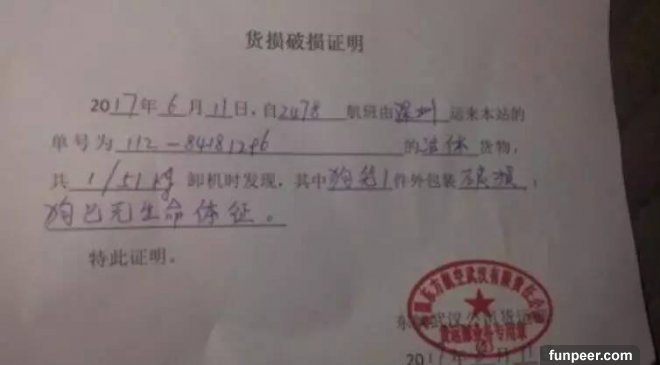 货损破损证明
2017年6月11日，自2478航班由深圳运来本站的
单号为112-84181296的活体货物，
共1/51kg卸机时发现，其中狗笼1件外包装破损，
狗已无生命体征。
特此证明。
东方航空武汉有限责任公司
武汉公司货运
专用章
2017年
funpeer.com